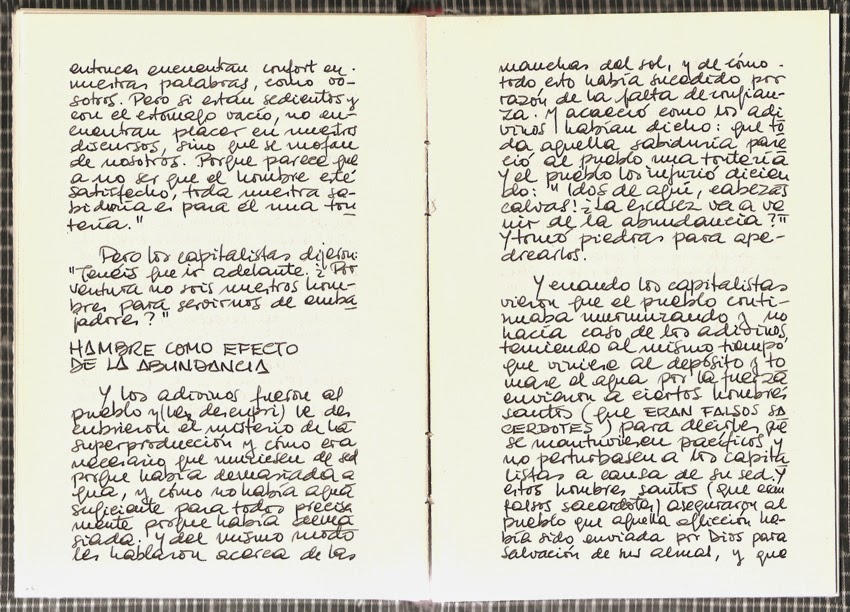 entonces encuentran confort en
nuestras palabras, como vo-
sotros. Pero si están sedientos y
con el estomago vacío, no en-
cuentran placer en nuestros
discursos, sino que se mofan
de nosotros. Porque parece que
a no ser que el hombre esté
satisfecho, toda nuestra sa-
biduria es para él una ton
tería."
Pero los capitalistas dijeron:
"Tenéis que ir adelante. ¿Por
ventura no sois nuestros hom-
bres para servirnos de emba
jadores?"
HAMBRE COMO EFECTO
DE LA ABUNDANCIA
Y los adivinos fueron al
pueblo y (les descupri) le des
cubrieron el misterio de la
superproducción y cómo era
necesario que muriesen de sed
porque había demasiada a
gua, y cómo no había agua
suficiente para todos precisa
mente porque había dema
siada. Y del mismo modo
les hablaron acerca de las
manchas del sol, y de cómo
todo esto había sucedido por
razón de la falta de confian-
za. Y acaeció como los adi
vinos habían dicho: que to
da aquella sabiduría pare
ció al pueblo una tontería
y el pueblo los injurió dicien
do: "Idos de aquí, cabezas
calvas! ¿La escasez va a ve
nir de la abundancia?"
Y tomó piedras para ape-
drearlos.
Y cuando los capitalistas
vieron que el pueblo conti-
nuaba murmurando y no
hacía caso de los adivinos,
temiendo al mismo tiempo,
que viniese al depósito y to
mase el agua por la fuerza
enviaron a ciertos hombres
santos (que ERAN FALSOS SA
CERDOTES) para decirles que
se mantuviesen pacíficos y
no perturbasen a los capita
listas a causa de su sed. Y
estos hombres santos (que eran
falsos sacerdotes) aseguraron al
pueblo que aquella aflicción ha-
bía sido enviada por Dios para
salvación de sus almas, y que